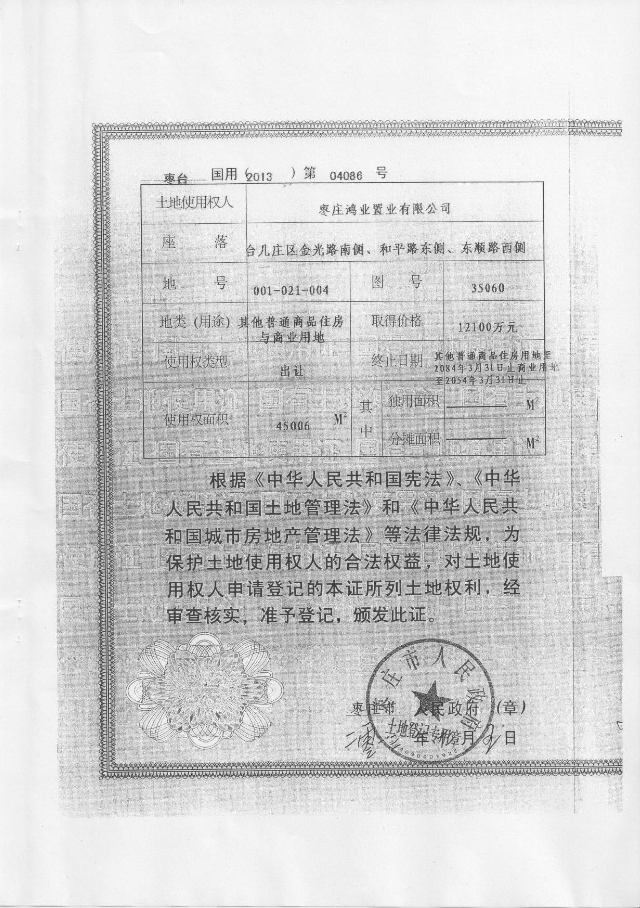 枣台 国用(2013 )第 04086 号
土地使用权人 枣庄鸿业置业有限公司
座 落 台儿庄区金光路南侧、和平路东侧、东顺路西侧
地 号 001-021-004 图 号 35060
地类(用途) 其他普通商品住房与商业用地 取得价格 12100万元
使用权类型 出让 终止日期 其他普通商品住房用地至2084年3月31日止商业用地至2054年3月31日止
使用权面积 45006 M² 其中 独用面积 M²
分摊面积 M²
根据《中华人民共和国宪法》、《中华
人民共和国土地管理法》和《中华人民共
和国城市房地产管理法》等法律法规，为
保护土地使用权人的合法权益，对土地使
用权人申请登记的本证所列土地权利，经
审查核实，准予登记，颁发此证。
枣庄市 人民政府 (章)
年 月 日
枣庄市人民政府
土地登记专用章